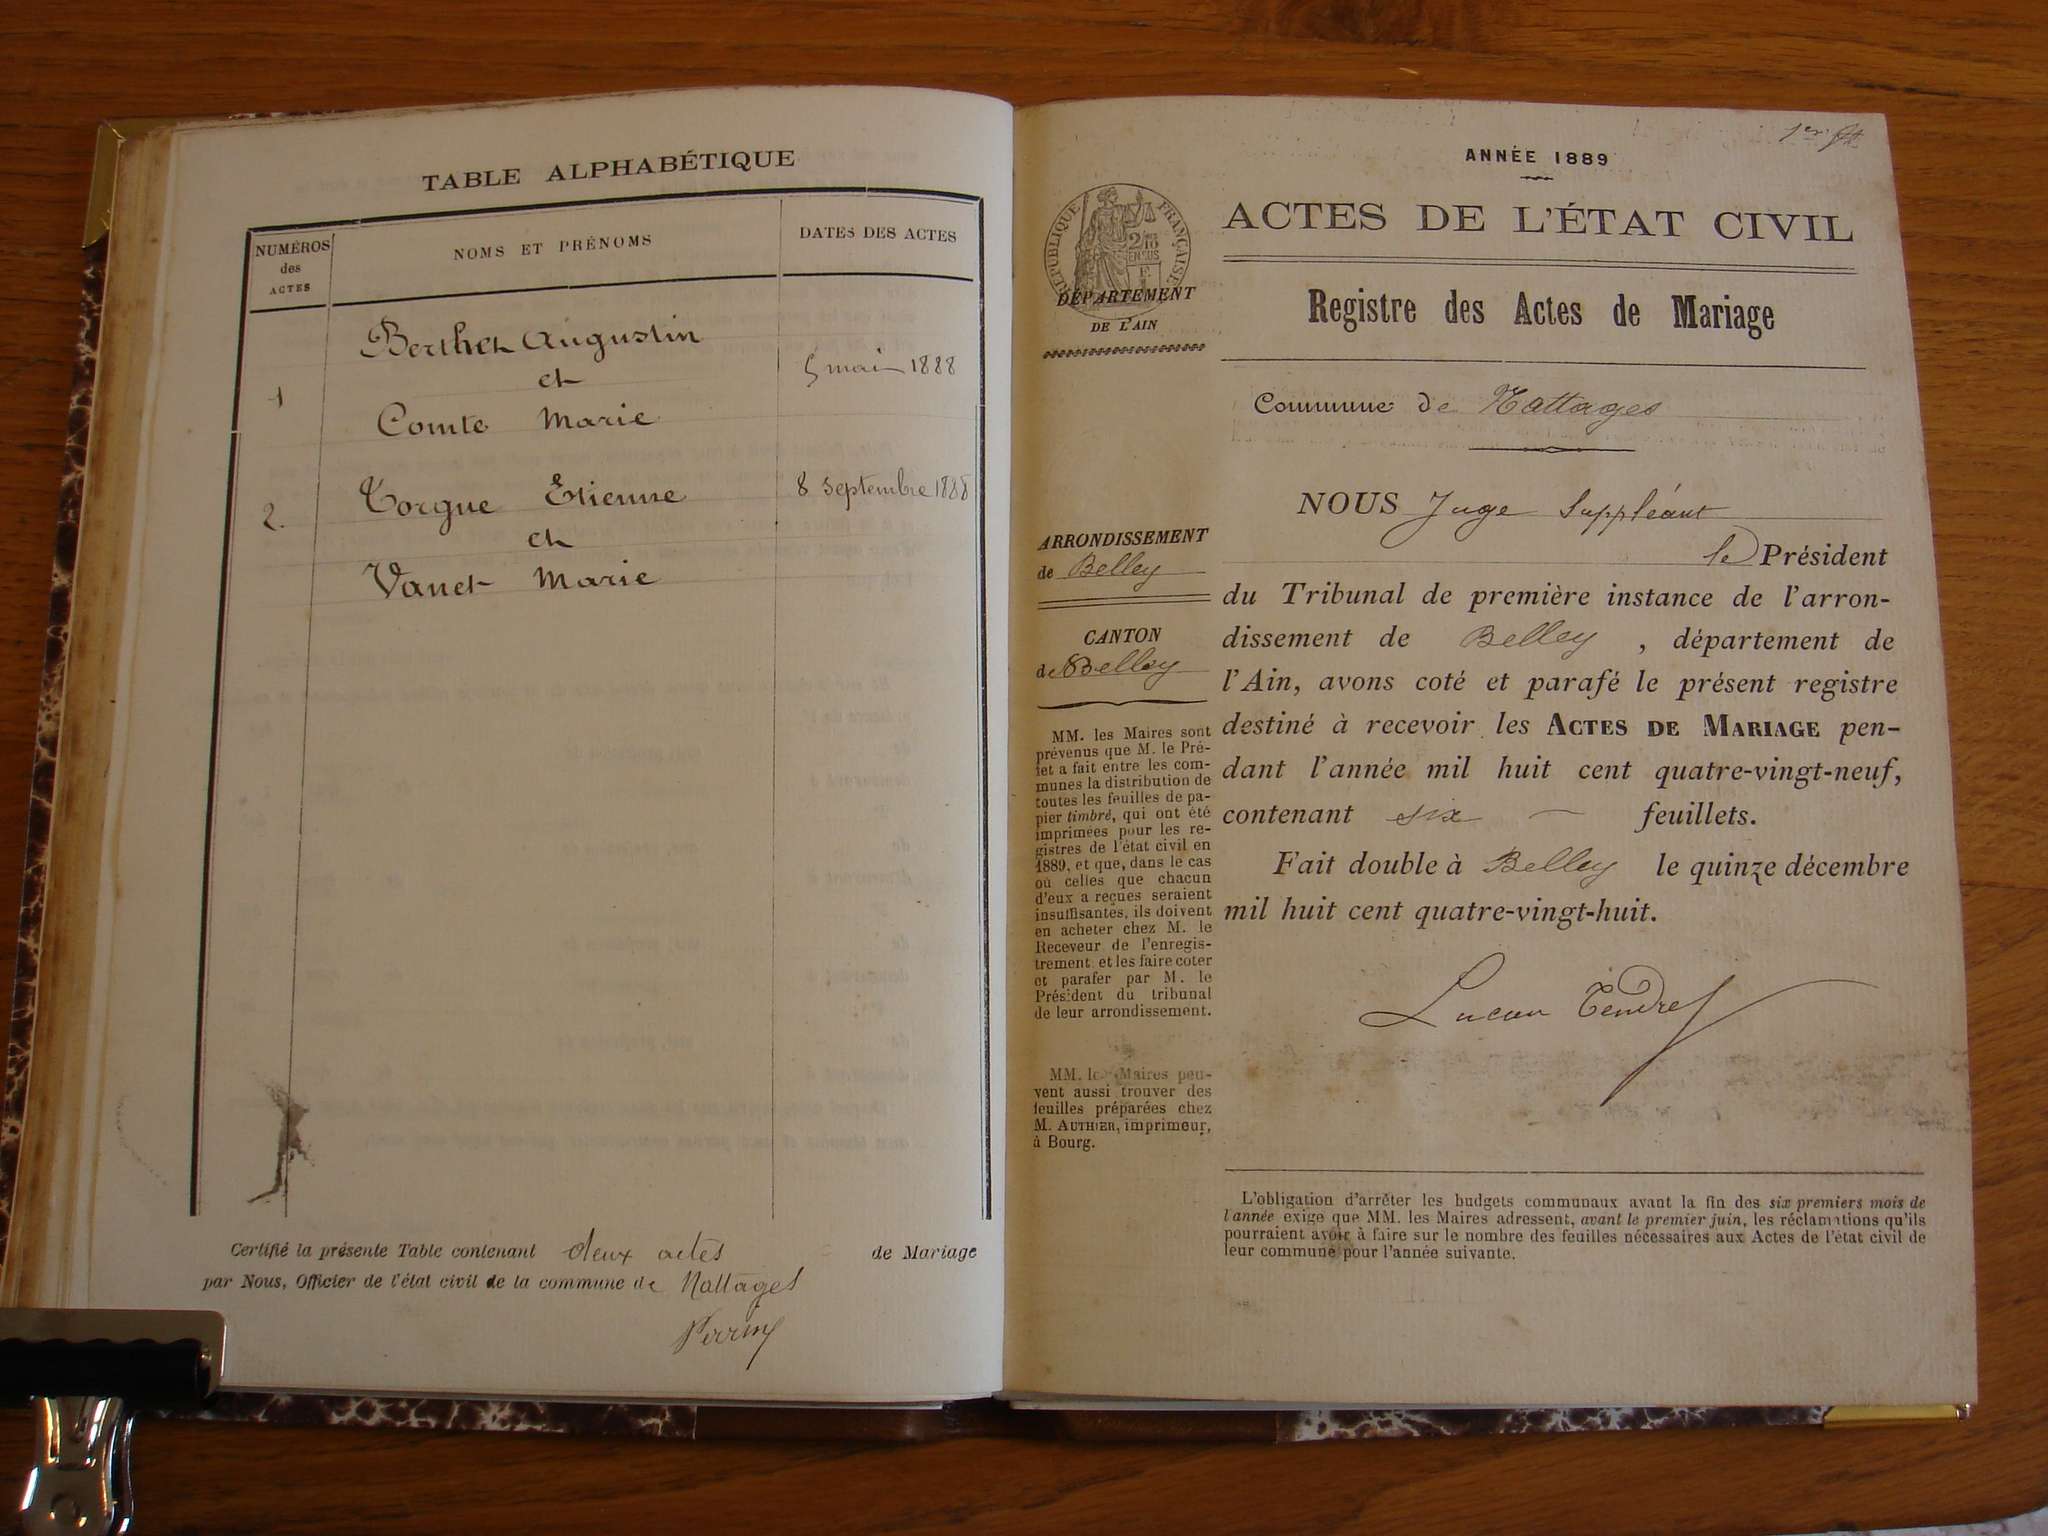 TABLE ALPHABÉTIQUE
NUMÉROS
des
ACTES
NOMS ET PRÉNOMS
DATES DES ACTES
1
Berthet Augustin
et
Comte Marie
5 mai 1888
2.
Torgue Etienne
et
Vanet Marie
8 septembre 1888
Certifié la présente Table contenant deux actes de Mariage
par Nous, Officier de l'état civil de la commune de Nattages
1er
ANNÉE 1889
ACTES DE L'ÉTAT CIVIL
Registre des Actes de Mariage
Commune de Nattages
RÉPUBLIQUE FRANÇAISE
DÉPARTEMENT
DE L'AIN
ARRONDISSEMENT
de Belley
CANTON
de Belley
MM. les Maires sont
prévenus que M. le Pré-
fet a fait entre les com-
munes la distribution de
toutes les feuilles de pa-
pier timbré, qui ont été
imprimées pour les re-
gistres de l'état civil en
1889, et que, dans le cas
où celles que chacun
d'eux a reçues seraient
insuffisantes, ils doivent
en acheter chez M. le
Receveur de l'enregis-
trement et les faire coter
et parafer par M. le
Président du tribunal
de leur arrondissement.
MM. les Maires peu-
vent aussi trouver des
feuilles préparées chez
M. AUTHIER, imprimeur,
à Bourg.
NOUS Juge Suppléant
le Président
du Tribunal de première instance de l'arron-
dissement de Belley , département de
l'Ain, avons coté et parafé le présent registre
destiné à recevoir les ACTES DE MARIAGE pen-
dant l'année mil huit cent quatre-vingt-neuf,
contenant six feuillets.
Fait double à Belley le quinze décembre
mil huit cent quatre-vingt-huit.
L'obligation d'arrêter les budgets communaux avant la fin des six premiers mois de
l'année exige que MM. les Maires adressent, avant le premier juin, les réclamations qu'ils
pourraient avoir à faire sur le nombre des feuilles nécessaires aux Actes de l'état civil de
leur commune pour l'année suivante.